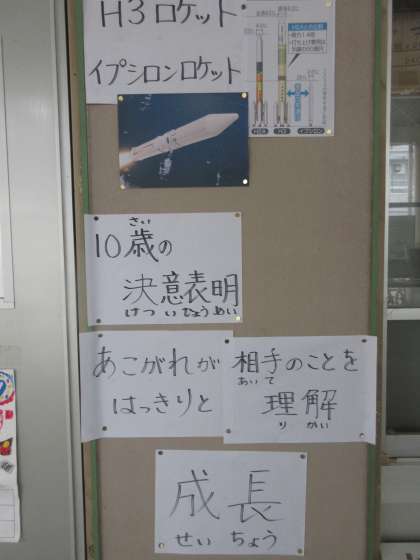 H3ロケット
イプシロンロケット
H2A
H3
イプシロン
さい
10歳の
決意表明
けついひょうめい
あこがれが
はっきりと
相手のことを
あいて
理解
りかい
成長
せいちょう